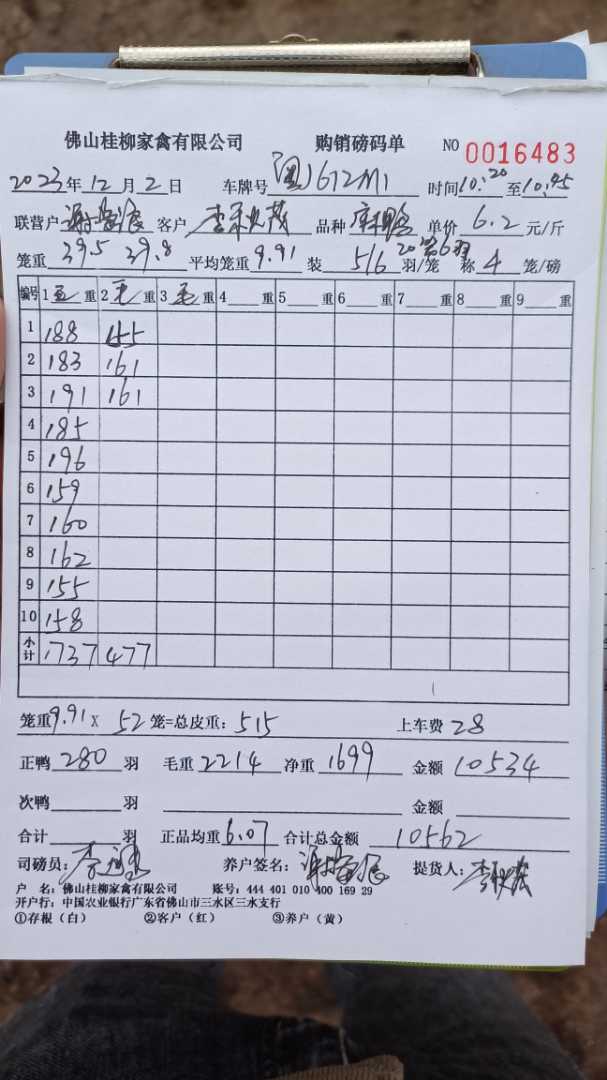 佛山桂柳家禽有限公司 购销磅码单 NO 0016483
2023年12月2日 车牌号 闽J612M1 时间10:20至10:45
联营户 客户 品种 单价 6.2 元/斤
笼重 39.5 39.8 平均笼重 9.91 装 5/6 羽/笼 称 4 笼/磅
编号 1 毛 重 2 毛 重 3 毛 重 4 重 5 重 6 重 7 重 8 重 9 重
1 188 155
2 183 161
3 191 161
4 185
5 196
6 159
7 160
8 162
9 155
10 158
小计 1737 477
笼重9.91 X 52 笼=总皮重: 515 上车费 28
正鸭 280 羽 毛重 2214 净重 1699 金额 10534
次鸭 羽 金额
合计 羽 正品均重 6.07 合计总金额 10562
司磅员: 养户签名: 提货人:
户 名: 佛山桂柳家禽有限公司 账号: 444 401 010 400 169 29
开户行: 中国农业银行广东省佛山市三水区三水支行
①存根（白） ②客户（红） ③养户（黄）